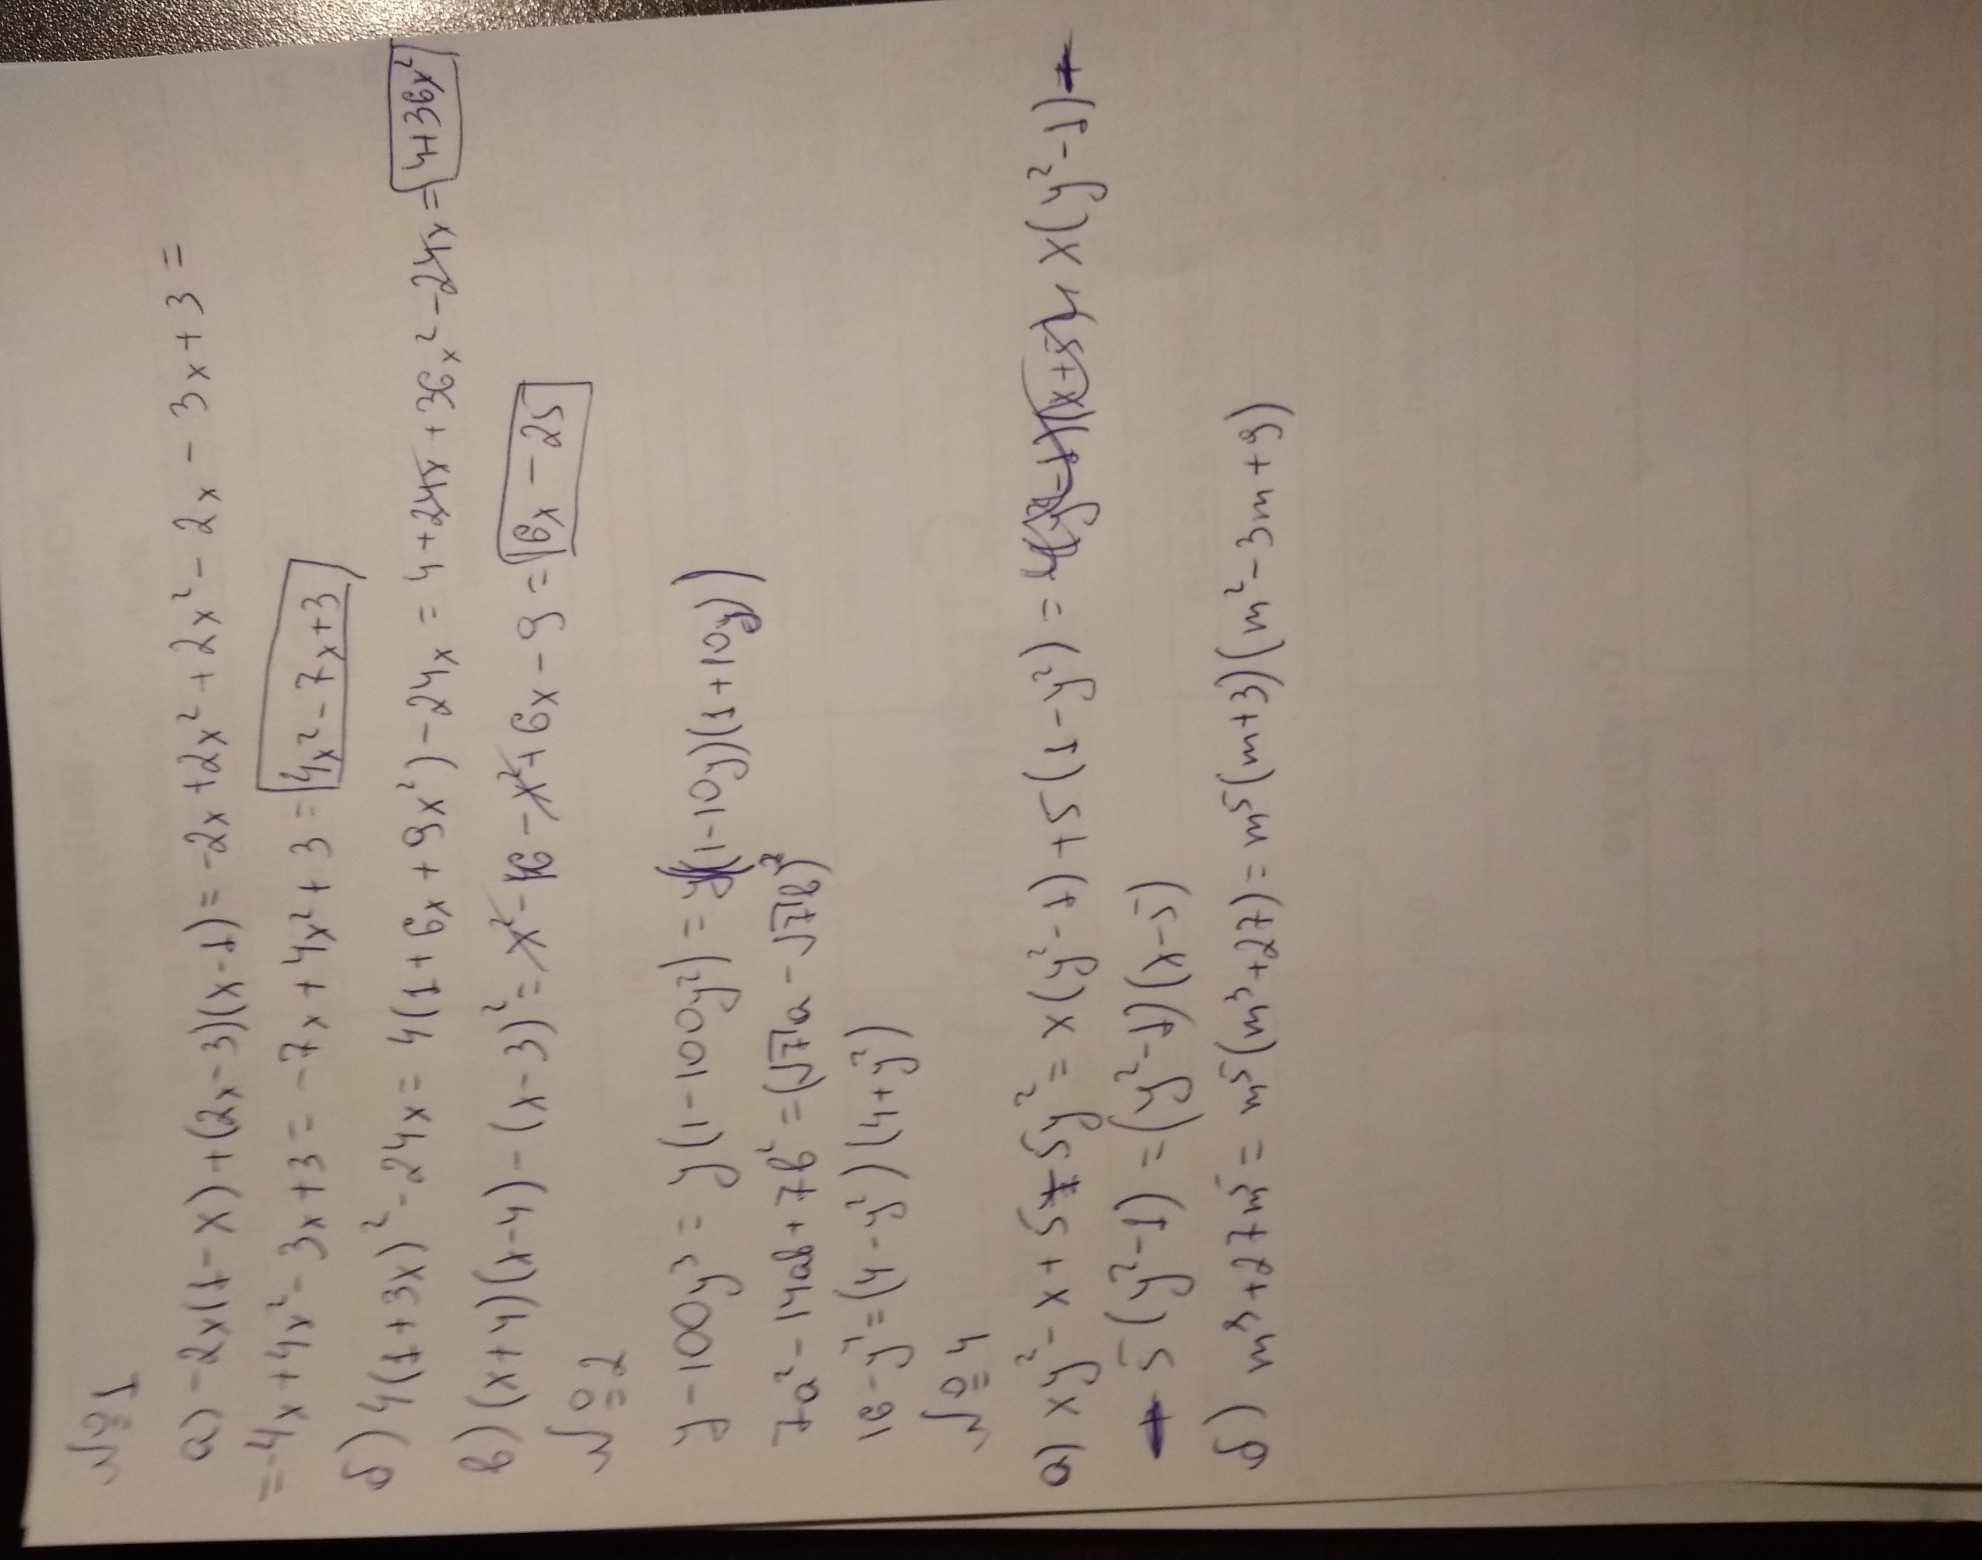 №1
а) -2x(1-x)+(2x-3)(x-1)=-2x+2x²+2x²-2x-3x+3=
=-4x+4x²-3x+3=-7x+4x²+3=4x²-7x+3
б) 4(1+3x)²-24x=4(1+6x+9x²)-24x=4+24x+36x²-24x=4+36x²
в) (x+4)(x-4)-(x-3)²=x²-16-x²+6x-9=6x-25
№2
y-100y³=y(1-100y²)=y(1-10y)(1+10y)
7a²-14ab+7b²=(√7a-√7b)²
16-y⁴=(4-y²)(4+y²)
№4
а) xy²-x+5-5y²=x(y²-1)+5(1-y²)=x(y²-1)-
-5(y²-1)=(y²-1)(x-5)
б) m⁸+27m⁵=m⁵(m³+27)=m⁵(m+3)(m²-3m+9)